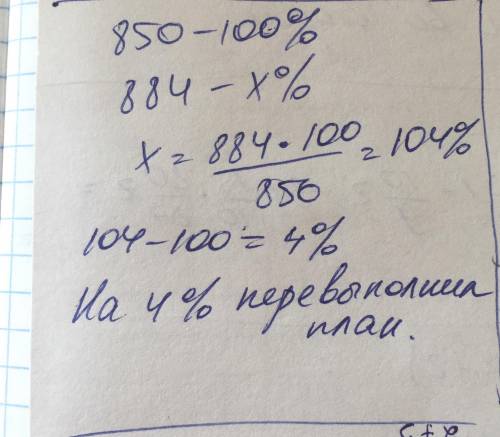 850 – 100%
884 – x%
x = 884 · 100 / 850 = 104%
104 – 100 = 4%
На 4% перевыполнил
план.